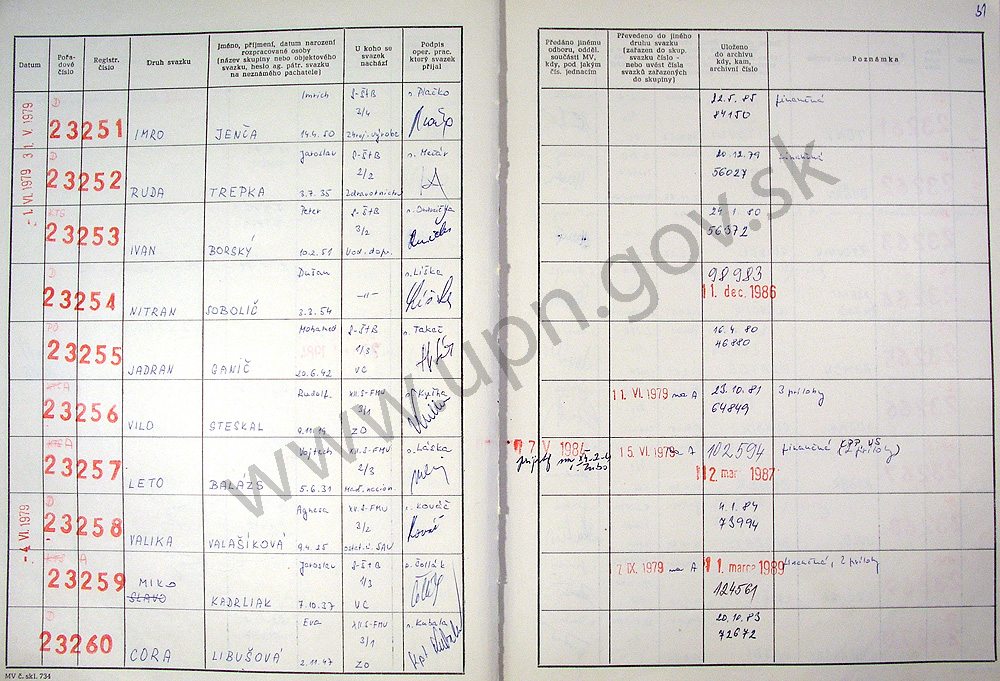 51
Datum
Pořa-
dové
číslo
Registr.
číslo
Druh svazku
Jméno, příjmení, datum narození
rozpracované osoby
(název skupiny nebo objektového
svazku, heslo ag. pátr. svazku
na neznámého pachatele)
U koho se
svazek
nachází
Podpis
oper. prac.
který svazek
přijal
Předáno jinému
odboru, odděl.
součásti MV,
kdy, pod jakým
čís. jednacím
Převedeno do jiného
druhu svazku
(zařazen do skup.
svazku číslo -
nebo uvést čísla
svazků zařazených
do skupiny)
Uloženo
do archivu
kdy, kam,
archivní číslo
Poznámka
3 1. V. 1979
- 1. VI. 1979
D
23251
IMRO
Imrich
JENČA
14.4.50
S-ŠtB
2/4
Zdroj. výroba
p. Plačko
22.5.85
84150
finančná
D
23252
RUDA
Jaroslav
TREPKA
3.7.35
S-ŠtB
2/2
20.12.79
56027
KTS
23253
IVAN
Peter
BORSKÝ
10.2.51
S-ŠtB
3/2
24.1.80
56372
D
23254
NITRAN
Dušan
SOBOLIČ
3.2.54
-"-
p. Liška
98983
11. dec. 1986
PO
23255
JADRAN
Mohamed
GANIČ
20.6.42
S-ŠtB
1/3
VC
p. Takač
16.4.80
46880
A
23256
VILO
Rudolf
STESKAL
XII.S-FMV
3/1
ZO
11. VI. 1979 na A
23.10.81
64849
3 prílohy
A
23257
LETO
Vojtech
BALAZS
5.6.31
XII.S-FMV
2/3
17. V. 1984
15. VI. 1979 na A
102594
12. mar. 1987
finančná
- 4. VI. 1979
D
23258
VALIKA
Agnesa
VALAŠÍKOVÁ
9.4.25
XII.S-FMV
3/2
p. Kováč
4.1.84
73994
A
23259
MIKO
SLAVO
Jaroslav
KADRLIAK
7.10.37
S-ŠtB
1/3
VC
p. Čollák
7. IX. 1979 na A
11. marca 1989
124561
finančné, 2 prílohy
D
23260
CORA
Eva
LIBUŠOVÁ
2.11.47
XII.S-FMV
3/1
ZO
p. Kubala
20.10.83
72672
MV č. skl. 734
www.upn.gov.sk